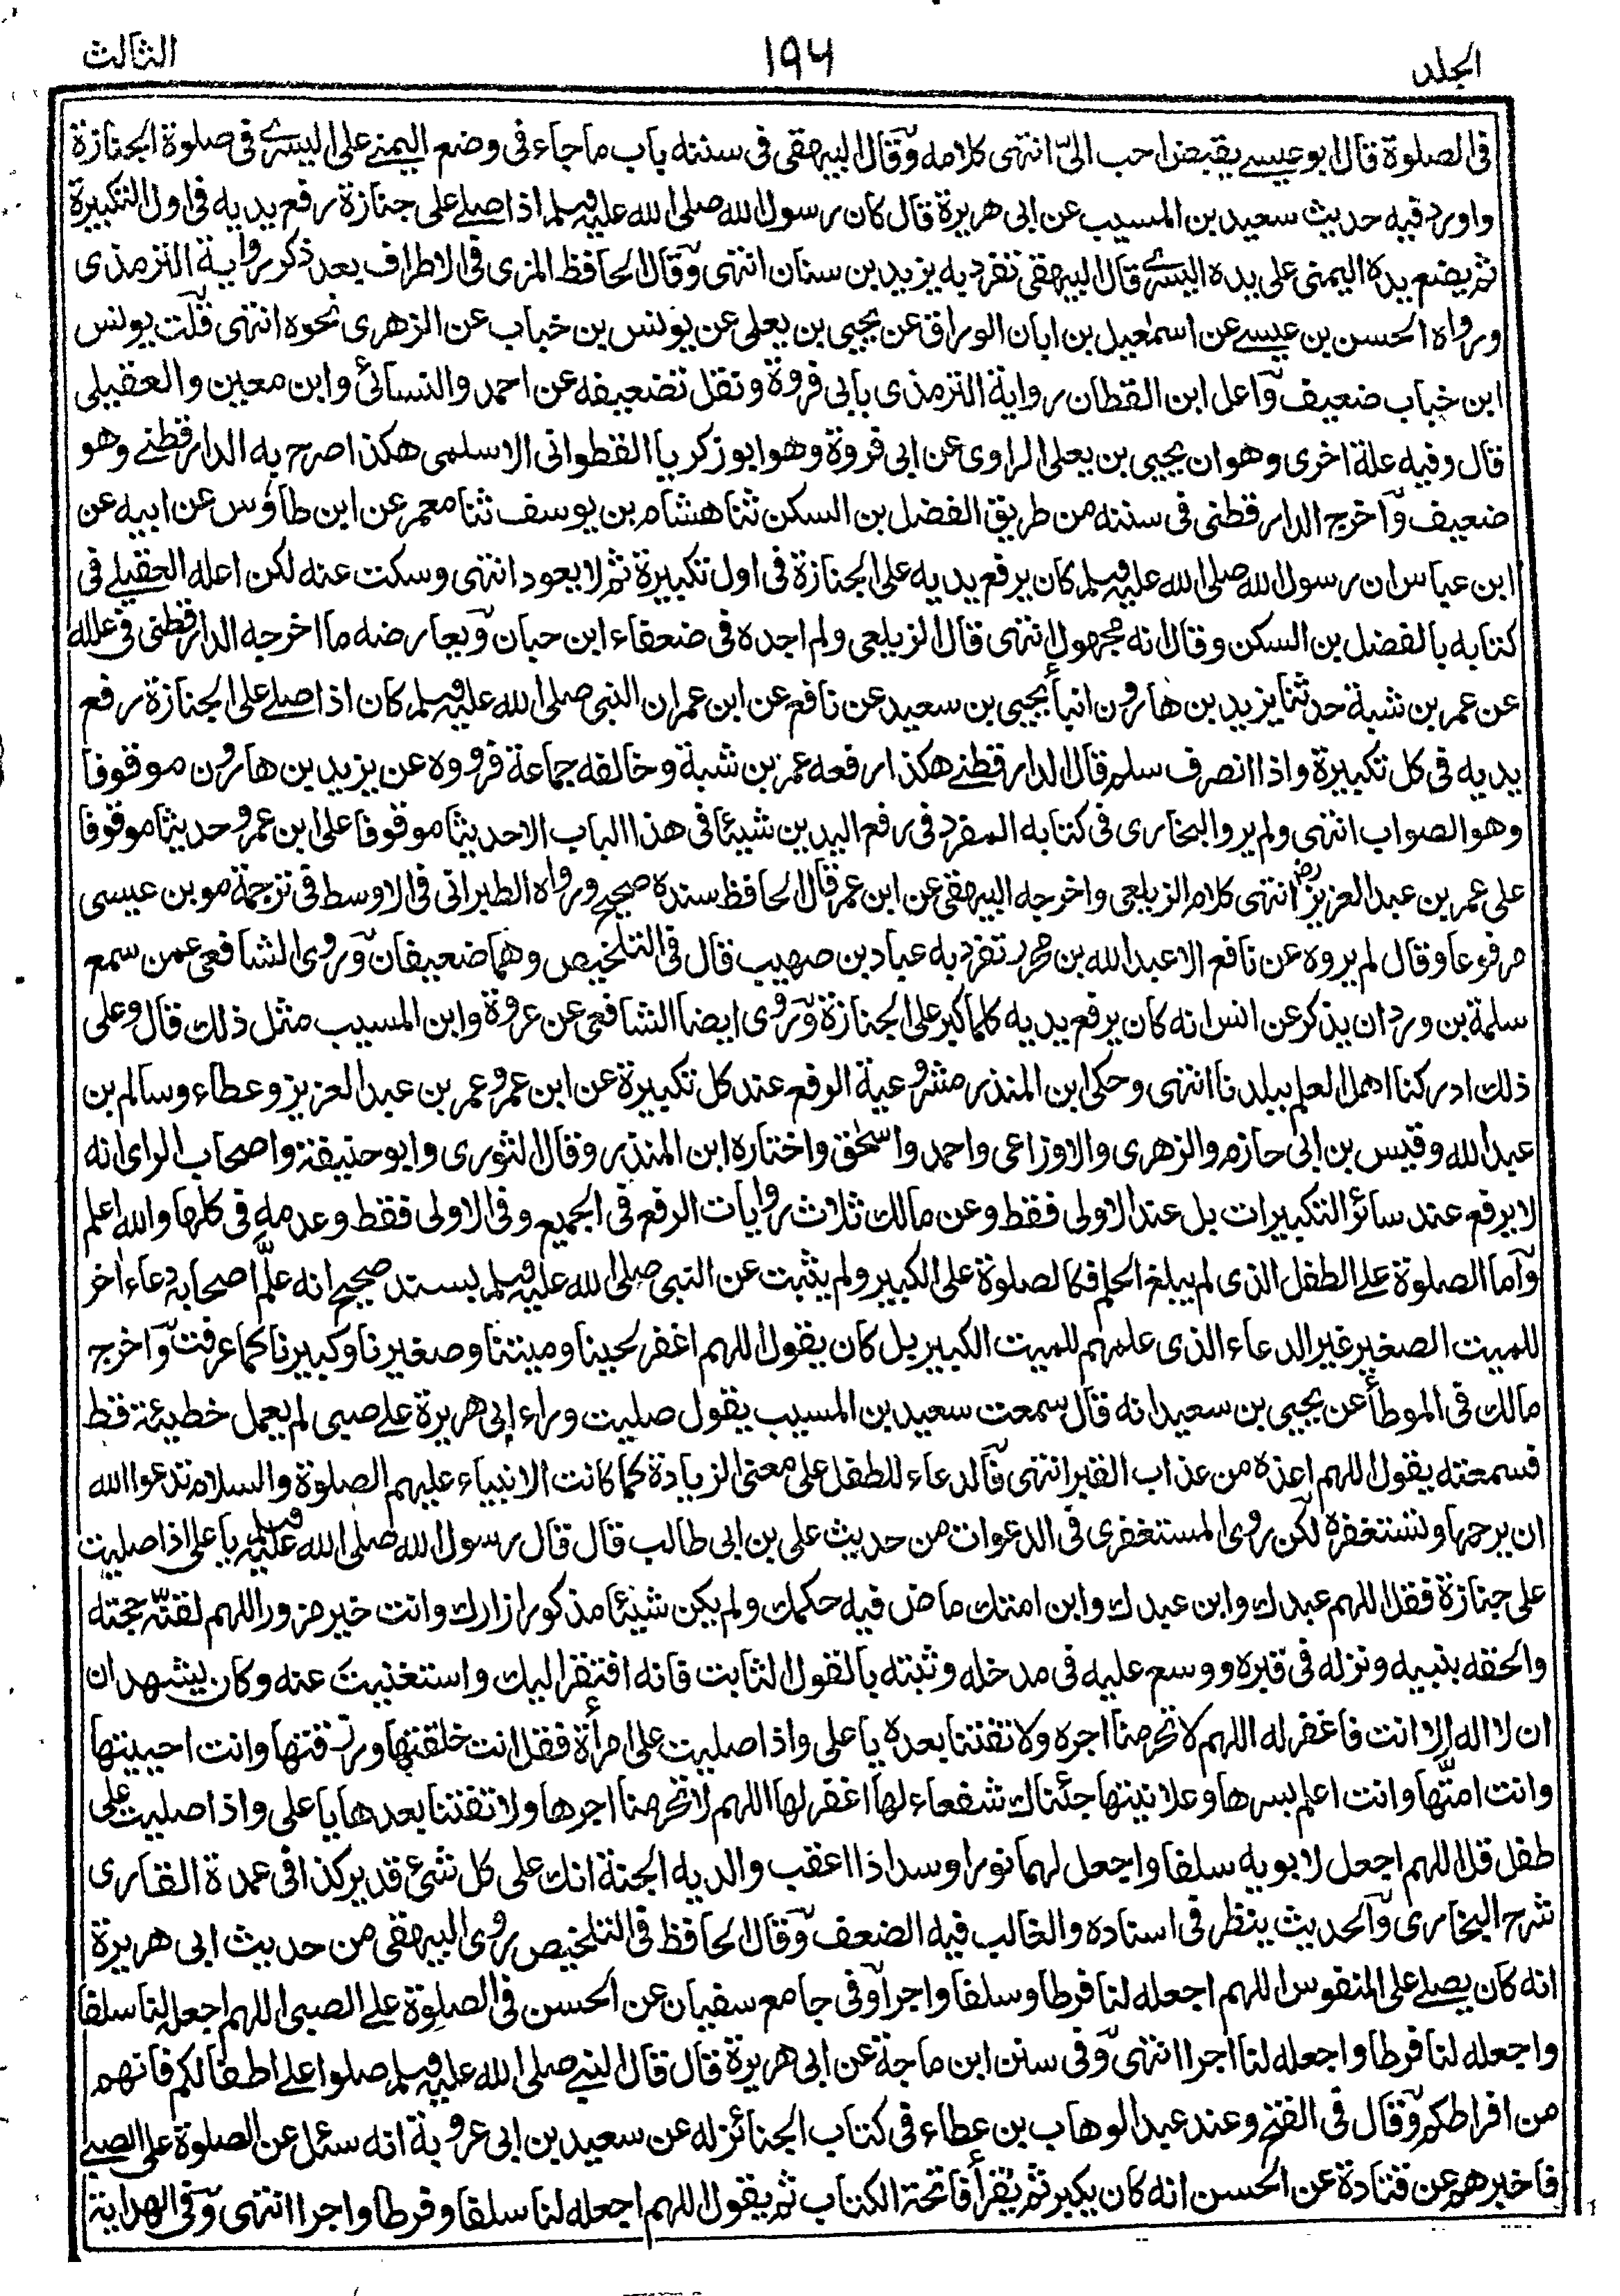 الجلد
١٩٦
الثالث
فى الصلوة قال ابو عيسے يقبض احب الىّ انتهى كلامه وقال البيهقى فى سننه باب ماجاء فى وضع اليمنے على اليسرے فى صلوة الجنازة
واورد فيه حديث سعيد بن المسيب عن ابى هريرة قال كان رسول الله صلى الله عليه وسلم اذا صلے على جنازة رفع يديه فى اول التكبيرة
ثم يضع يده اليمنى على يده اليسرے قال البيهقى تفرد به يزيد بن سنان انتهى وقال الحافظ المزى فى الاطراف بعد ذكر رواية الترمذى
ورواه الحسن بن عيسے عن اسمعيل بن ابان الوراق عن يحيى بن يعلى عن يونس بن خباب عن الزهرى نحوه انتهى قلت يونس
ابن خباب ضعيف وآعل ابن القطان رواية الترمذى بابى فروة ونقل تضعيفه عن احمد والنسائى وابن معين والعقيلى
قال وفيه علة اخرى وهو ان يحيى بن يعلى الراوى عن ابى فروة وهو ابو زكريا القطوانى الاسلمى هكذا صرح به الدارقطنے وهو
ضعيف وآخرج الدارقطنى فى سننه من طريق الفضل بن السكن ثنا هشام بن يوسف ثنا معمر عن ابن طاؤس عن ابيه عن
ابن عباس ان رسول الله صلى الله عليه وسلم كان يرفع يديه على الجنازة فى اول تكبيرة ثم لا يعود انتهى وسكت عنه لكن اعله العقيلے فى
كتابه بالفضل بن السكن وقال انه مجهول انتهى قال الزيلعى ولم اجده فى ضعفاء ابن حبان ويعارضه ما اخرجه الدارقطنى فى علله
عن عمر بن شبة حدثنا يزيد بن هارون انبأ يحيى بن سعيد عن نافع عن ابن عمران النبى صلى الله عليه وسلم كان اذا صلے على الجنازة رفع
يديه فى كل تكبيرة واذا انصرف سلم قال الدارقطنے هكذا رفعه عمر بن شبة وخالفه جماعة فرووه عن يزيد بن هارون موقوفا
وهو الصواب انتهى ولم يرو البخارى فى كتابه المفرد فى رفع اليدين شيئا فى هذا الباب الاحديثا موقوفا على ابن عمر وحديثا موقوفا
على عمر بن عبد العزيز رض انتهى كلام الزيلعى واخرجه البيهقى عن ابن عمر قال الحافظ سنده صحيح ورواه الطبرانى فى الاوسط فى ترجمة موبن عيسى
مرفوعا وقال لم يروه عن نافع الا عبد الله بن محرر تفرد به عباد بن صهيب قال فى التلخيص وهما ضعيفان وروى الشافعى عمن سمع
سلمة بن وردان يذكر عن انس انه كان يرفع يديه كلما كبر على الجنازة وروى ايضا الشافعى عن عروة وابن المسيب مثل ذلك قال وعلى
ذلك ادركنا اهل العلم ببلدنا انتهى وحكى ابن المنذر مشروعية الرفع عند كل تكبيرة عن ابن عمر وعمر بن عبد العزيز وعطاء وسالم بن
عبد الله وقيس بن ابى حازم والزهرى والاوزاعى واحمد واسحٰق واختاره ابن المنذر وقال الثورى وابو حنيفة واصحاب الراى انه
لا يرفع عند سائر التكبيرات بل عند الاولى فقط وعن مالك ثلاث روايات الرفع فى الجميع وفى الاولى فقط وعدمه فى كلها والله اعلم
وآما الصلوة علے الطفل الذى لم يبلغ الحلم فكالصلوة على الكبير ولم يثبت عن النبى صلى الله عليه وسلم بسند صحيح انه علّم اصحابه دعاء اٰخر
للميت الصغير غير الدعاء الذى علمهم للميت الكبير بل كان يقول اللهم اغفر لحينا وميتنا وصغيرنا وكبيرنا كما عرفت وآخرج
مالك فى الموطأ عن يحيى بن سعيد انه قال سمعت سعيد بن المسيب يقول صليت وراء ابى هريرة علے صبى لم يعمل خطيئة قط
فسمعته يقول اللهم اعذه من عذاب القبر انتهى فآلدعاء للطفل على معنى الزيادة كما كانت الانبياء عليهم الصلوة والسلام تدعوا الله
ان يرحمها وتستغفره لكن روى المستغفرى فى الدعوات من حديث على بن ابى طالب قال قال رسول الله صلى الله عليه وسلم يا على اذا صليت
على جنازة فقل اللهم عبدك وابن عبدك وابن امتك ماض فيه حكمك ولم يكن شيئا مذكورا زارك وانت خير مزور اللهم لقنّه حجته
والحقه بنبيه ونزله فى قبره ووسع عليه فى مدخله وثبته بالقول الثابت فانه افتقر اليك واستغنيت عنه وكان يشهد ان
ان لا اله الا انت فاغفر له اللهم لا تحرمنا اجره ولا تفتنا بعده يا على واذا صليت على امرأة فقل انت خلقتها ورزقتها وانت احييتها
وانت امتّها وانت اعلم بسرها وعلانيتها جئناك شفعاء لها اغفر لها اللهم لا تحرمنا اجرها ولا تفتنا بعدها يا على واذا صليت على
طفل قل اللهم اجعل لابويه سلفا واجعل لهما نورا وسدادا اعقب والديه الجنة انك على كل شئ قدير كذا فى عمدة القارى
شرح البخارى وآلحديث ينظر فى اسناده والغالب فيه الضعف وقال الحافظ فى التلخيص روى البيهقى من حديث ابى هريرة
انه كان يصلے على المنفوس اللهم اجعله لنا فرطا وسلفا واجرا وفى جامع سفيان عن الحسن فى الصلوة علے الصبى اللهم اجعله لنا سلفا
واجعله لنا فرطا واجعله لنا اجرا انتهى وفى سنن ابن ماجة عن ابى هريرة قال قال النبے صلى الله عليه وسلم صلوا علے اطفالكم فانهم
من افراطكم وقال فى الفتح وعند عبد الوهاب بن عطاء فى كتاب الجنائز له عن سعيد بن ابى عروبة انه سئل عن الصلوة على الصبے
فاخبرهم عن قتادة عن الحسن انه كان يكبر ثم يقرأ فاتحة الكتاب ثم يقول اللهم اجعله لنا سلفا وفرطا واجرا انتهى وفى الهداية